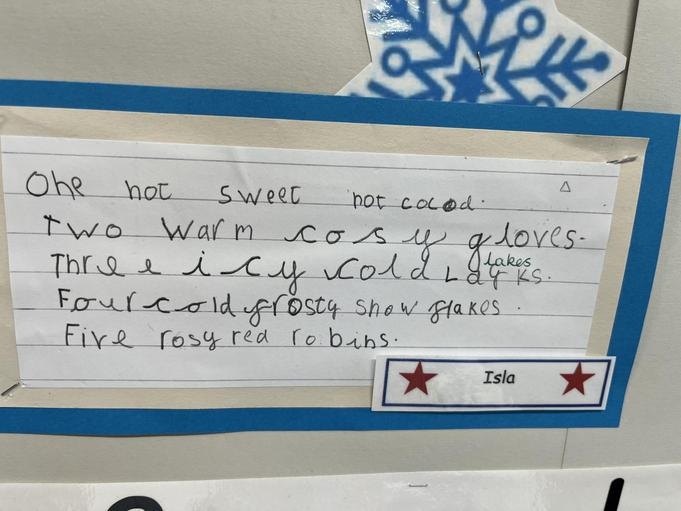 One hot sweet hot cocod.
Two warm cosy gloves.
lakes
Three icy cold Layks.
Four cold frosty snow flakes.
Five rosy red robins.
Isla